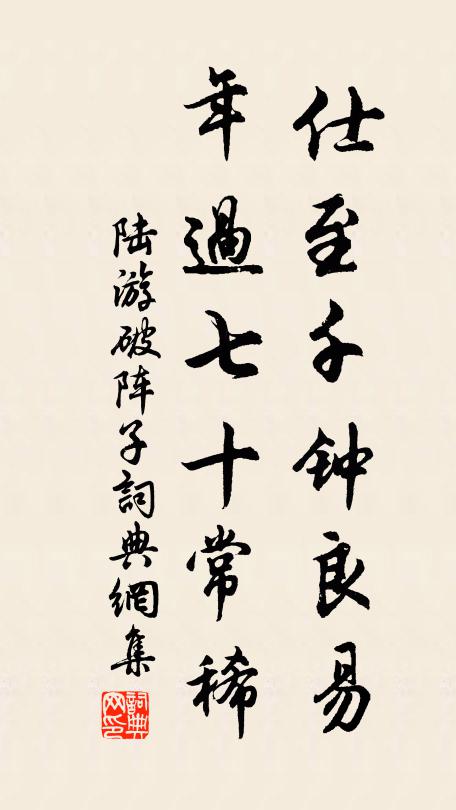 仕至千钟良易
年過七十常稀
陆游破阵子詞典網集
詞典网印